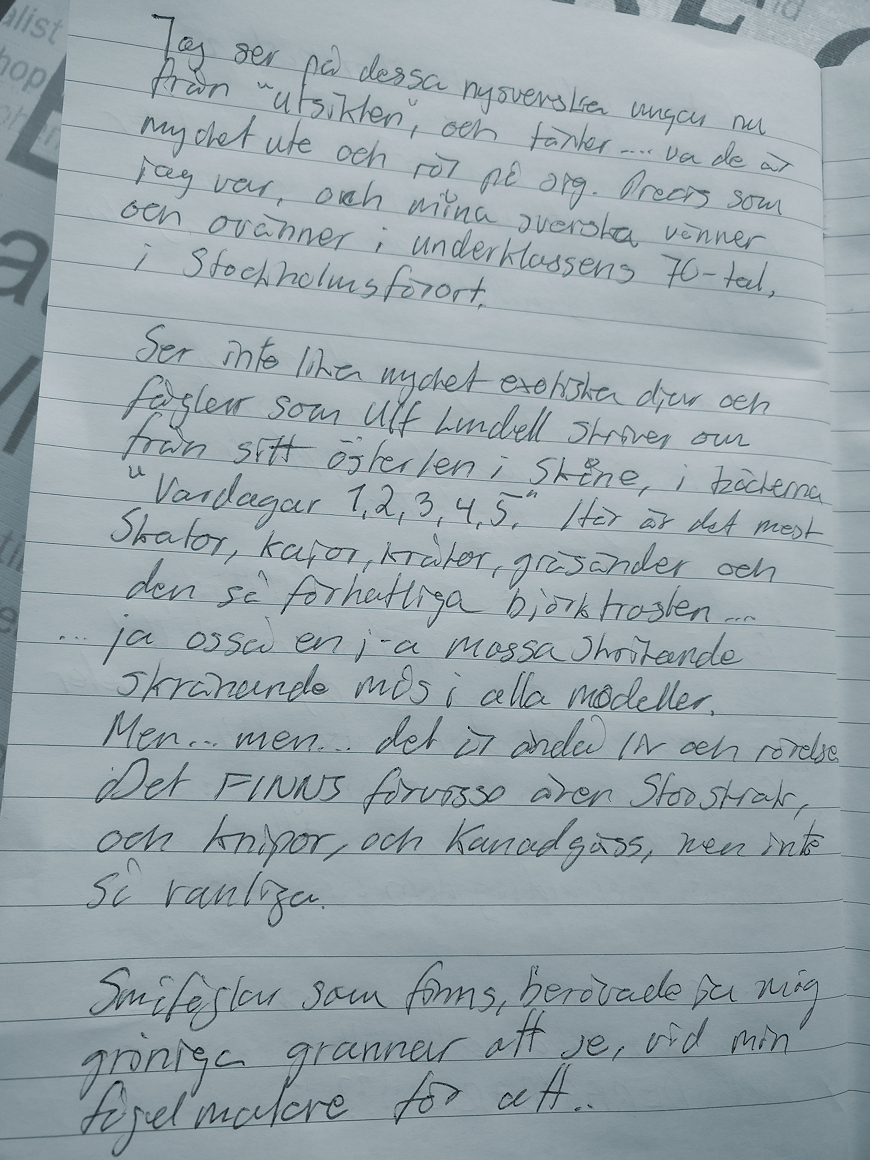 Jag ser på dessa nysvenska ungar nu
från "utsikten", och tänker.... va de är
mycket ute och rör på sig. Precis som
jag var, och mina svenska vänner
och ovänner i underklassens 70-tal,
i Stockholmsförort.
Ser inte lika mycket exotiska djur och
fåglar som Ulf Lundell skriver om
från sitt österlen i Skåne, i böckerna
"Vardagar 1,2,3,4,5." Här är det mest
Skator, kajor, kråkor, gräsänder och
den så förhatliga björktrasten...
... ja osså en j-a massa skrikande
skränande mås i alla modeller.
Men... men... det är ändå liv och rörelse
Det FINNS förvisso även Storskrak,
och knipor, och Kanadgäss, men inte
så vanliga.
Småfåglar som finns, berövade ju mig
gröniga grannar att se, vid min
fågelmatare för att..